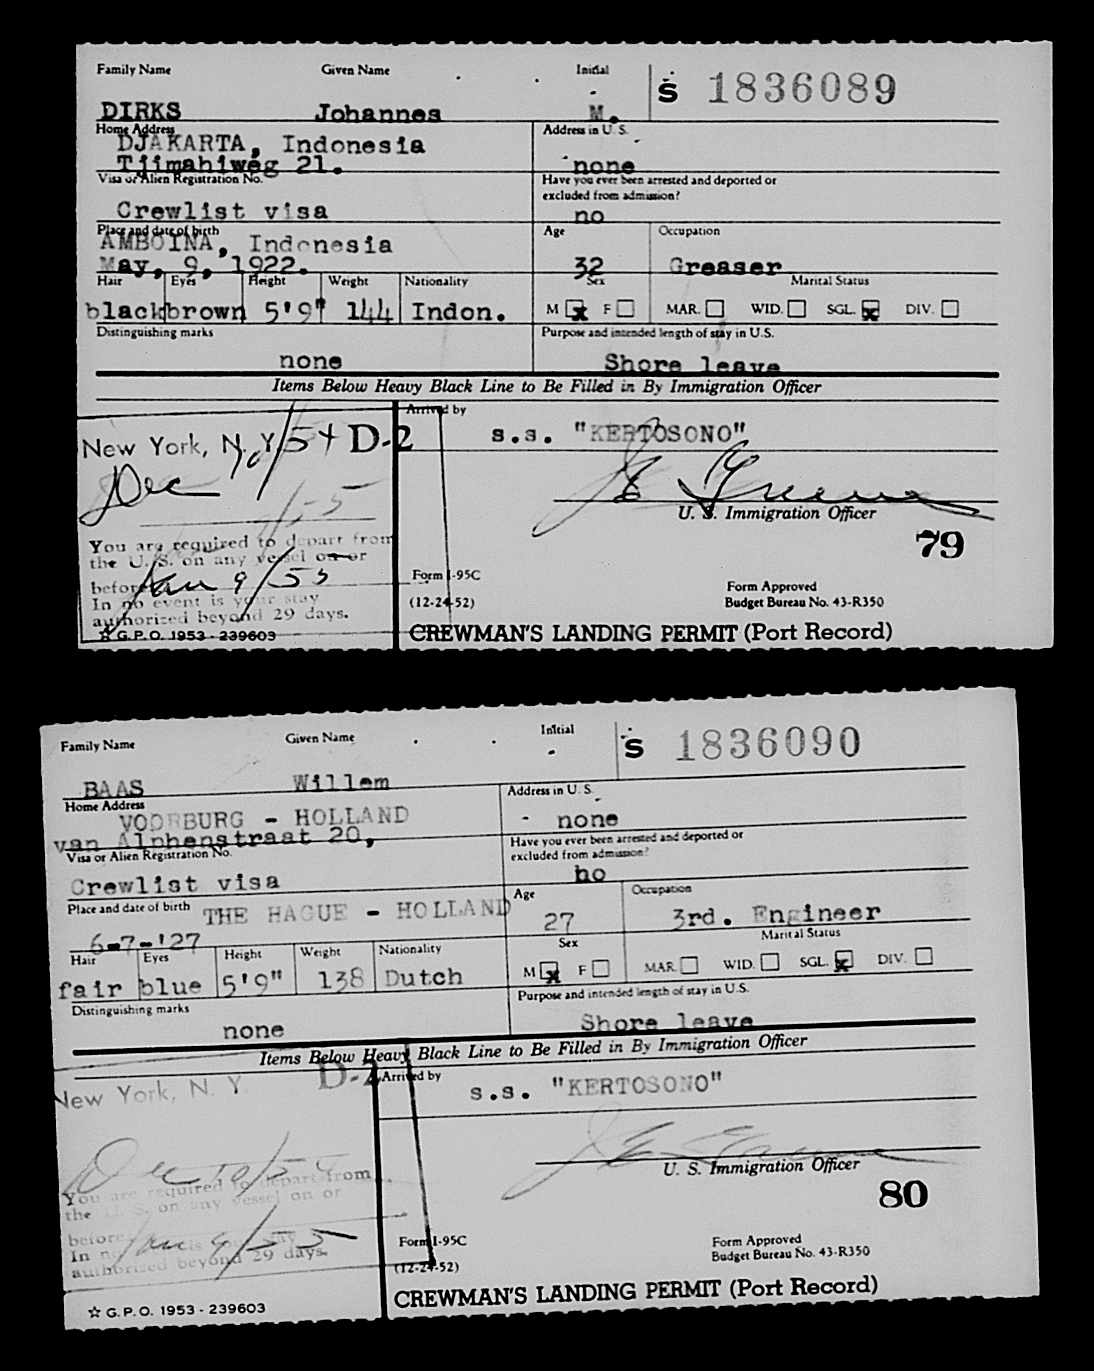 Family Name Given Name Initial S 1836089
DIRKS Johannes M.
Home Address Address in U. S.
DJAKARTA, Indonesia
Tjimahiweg 21. none
Visa or Alien Registration No. Have you ever been arrested and deported or
excluded from admission?
Crewlist visa no
Place and date of birth Age Occupation
AMBOINA, Indonesia
May, 9, 1922. 32 Greaser
Hair Eyes Height Weight Nationality Sex Marital Status
black brown 5'9" 144 Indon. M x F MAR. WID. SGL. x DIV.
Distinguishing marks Purpose and intended length of stay in U.S.
none Shore leave
Items Below Heavy Black Line to Be Filled in By Immigration Officer
Arrived by
New York, N. Y. D-2 s.s. "KERTOSONO"
Dec 10/54
U. S. Immigration Officer
79
You are required to depart from
the U. S. on any vessel on or
before Jan 9/55 Form I-95C Form Approved
In no event is your stay (12-24-52) Budget Bureau No. 43-R350
authorized beyond 29 days.
☆ G.P.O. 1953 - 239603 CREWMAN'S LANDING PERMIT (Port Record)
Family Name Given Name Initial S 1836090
BAAS Willem
Home Address Address in U. S.
VOORBURG - HOLLAND none
van Alphenstraat 20,
Visa or Alien Registration No. Have you ever been arrested and deported or
excluded from admission?
Crewlist visa no
Place and date of birth THE HAGUE - HOLLAND Age Occupation
6-7-'27 27 3rd. Engineer
Hair Eyes Height Weight Nationality Sex Marital Status
fair blue 5'9" 138 Dutch M x F MAR. WID. SGL. x DIV.
Distinguishing marks Purpose and intended length of stay in U.S.
none Shore leave
Items Below Heavy Black Line to Be Filled in By Immigration Officer
New York, N. Y. D-2 Arrived by
s.s. "KERTOSONO"
Dec 10/54
U. S. Immigration Officer
You are required to depart from 80
the U. S. on any vessel on or
before Jan 9/55 Form I-95C Form Approved
In no event is your stay (12-24-52) Budget Bureau No. 43-R350
authorized beyond 29 days.
☆ G.P.O. 1953 - 239603 CREWMAN'S LANDING PERMIT (Port Record)